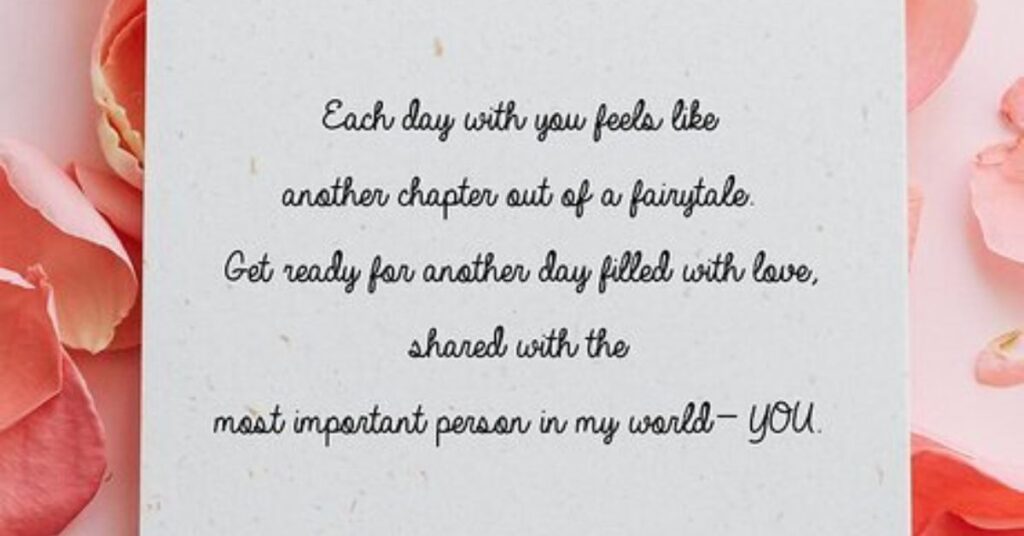 Each day with you feels like
another chapter out of a fairytale.
Get ready for another day filled with love,
shared with the
most important person in my world— YOU.